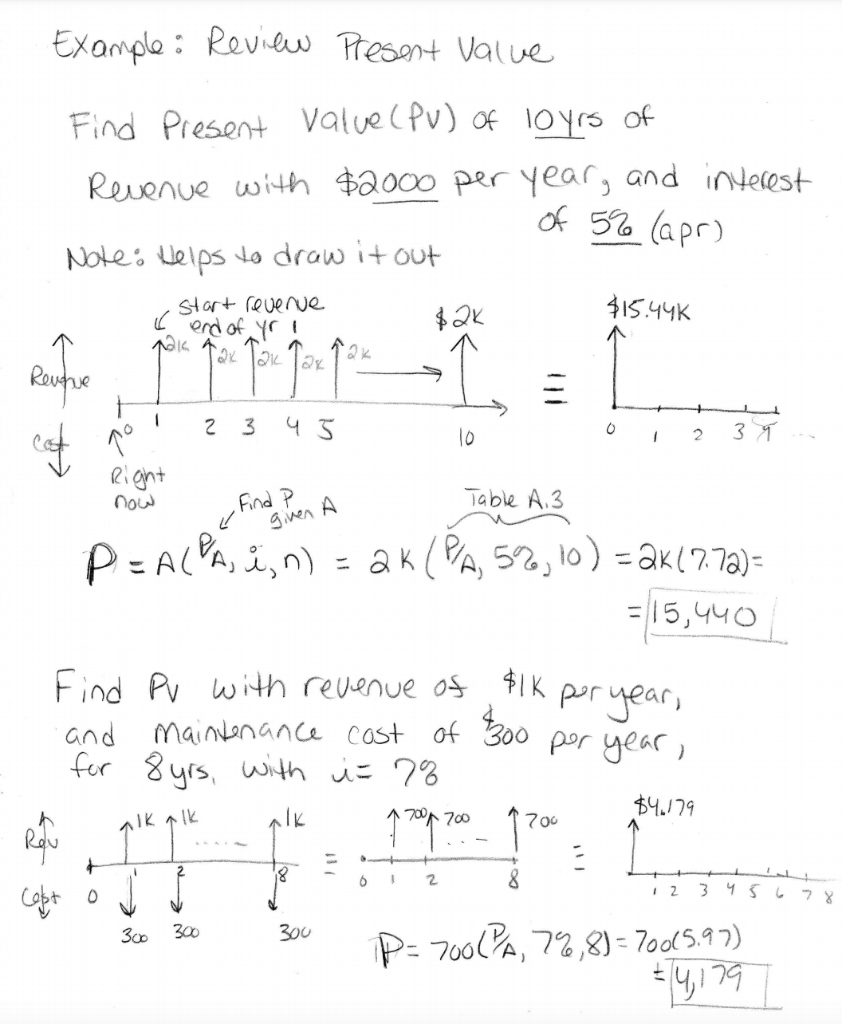 Example: Review Present Value
Find Present Value (PV) of 10yrs of
Revenue with $2000 per year, and interest
of 5% (apr)
Note: Helps to draw it out
start revenue
end of yr 1
2K 2K 2K 2K 2K
$2K
$15.44K
Revenue
Cost
0 1 2 3 4 5 10
≡
0 1 2 3 4 ...
Right
now
Find P
given A
Table A.3
P = A(P/A, i, n) = 2K (P/A, 5%, 10) = 2K(7.72) =
= 15,440
Find PV with revenue of $1K per year,
and maintenance cost of $300 per year,
for 8 yrs, with i = 7%
Rev
Cost
1K 1K ..... 1K
0 1 2 8
300 300 300
≡
700 700 ... 700
0 1 2 8
≡
$4.179
1 2 3 4 5 6 7 8
P = 700(P/A, 7%, 8) = 700(5.97)
= 4,179